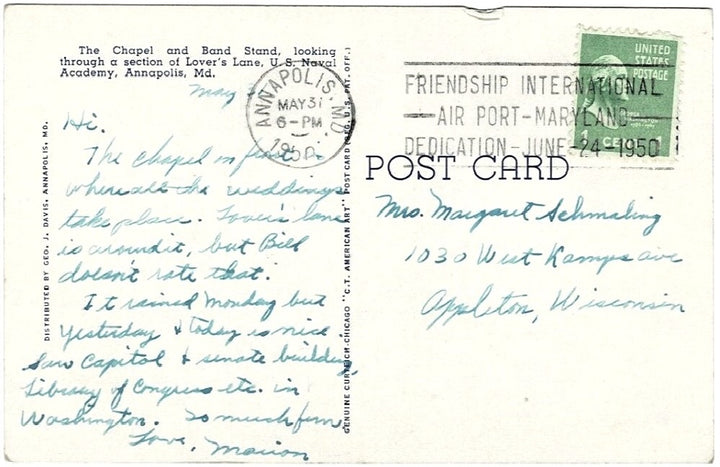 The Chapel and Band Stand, looking
through a section of Lover's Lane, U. S. Naval
Academy, Annapolis, Md.
May
Hi.
The chapel in front
where all the weddings
take place. Lover's lane
is around it, but Bill
doesn't rate that.
It rained Monday but
yesterday & today is nice
Saw Capitol & senate building,
Library of Congress etc. in
Washington. So much fun.
Love, Marion
DISTRIBUTED BY GEO. J. DAVIS, ANNAPOLIS, MD.
GENUINE CURTEICH-CHICAGO "C.T. AMERICAN ART" POST CARD (REG. U. S. PAT. OFF.)
ANNAPOLIS, MD.
MAY 31
6-PM
1950
FRIENDSHIP INTERNATIONAL
AIR PORT-MARYLAND
DEDICATION-JUNE-24-1950
UNITED
STATES
POSTAGE
1 CE
POST CARD
Mrs. Margaret Schmaling
1030 West Kamps ave
Appleton, Wisconsin